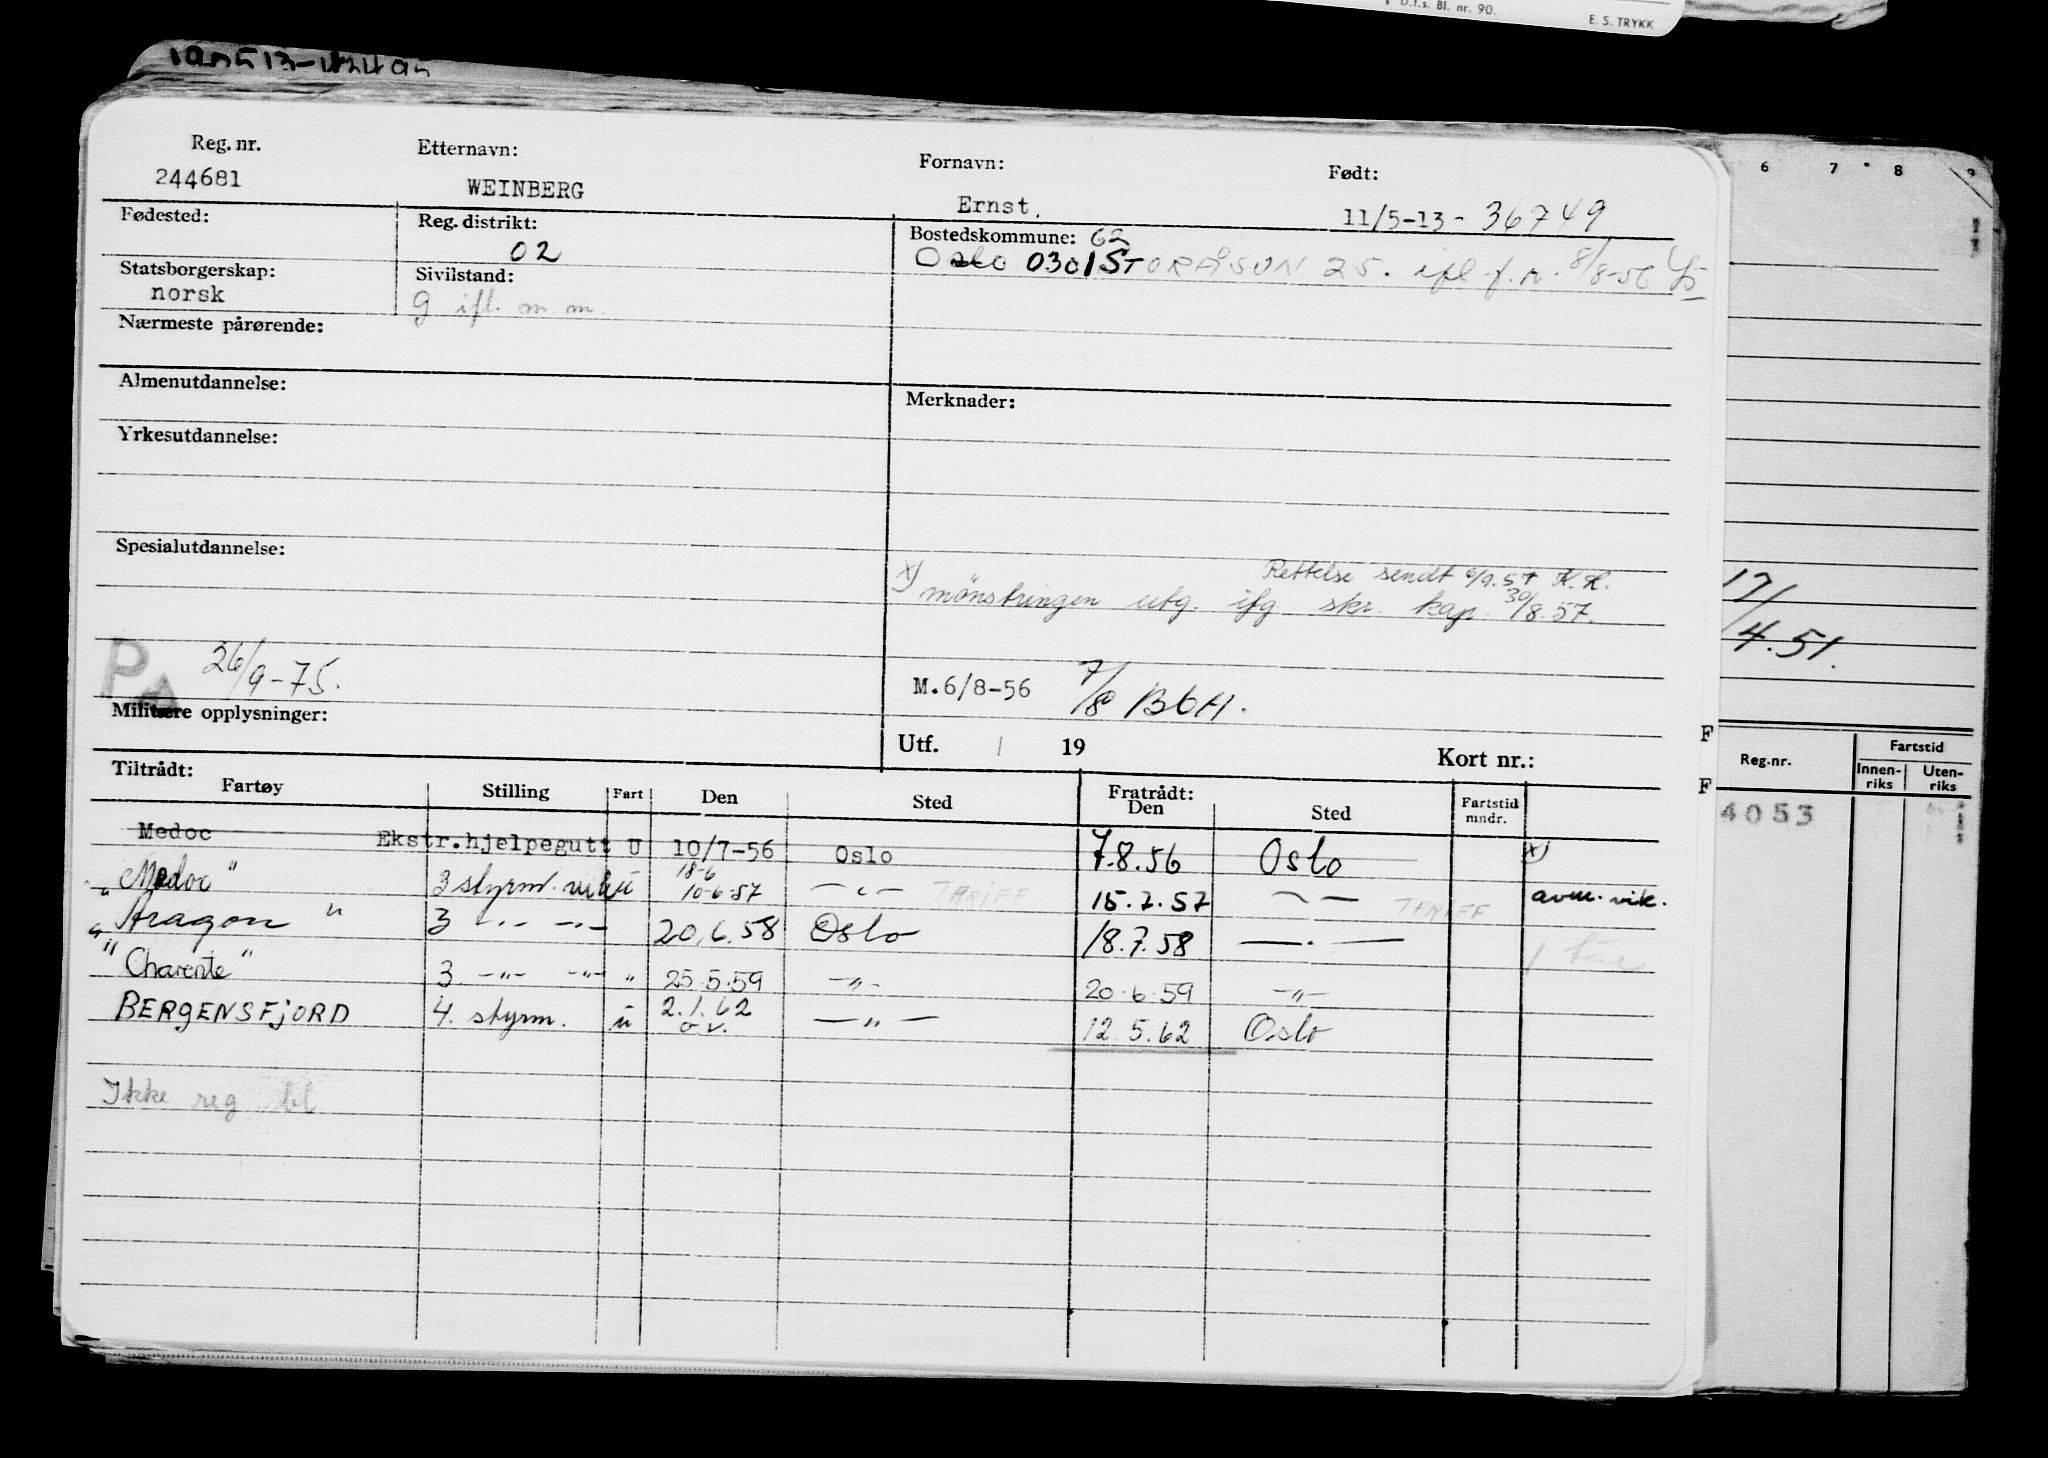 D.f.s. Bl. nr. 90.
E. S. TRYKK
Reg. nr. Etternavn: Fornavn: Født:
244681 WEINBERG Ernst. 11/5-13 - 36749
Fødested: Reg. distrikt: Bostedskommune: 62
02 Oslo 0301 STORÅSVN 25. ifl. f.r. 8/8-56
Statsborgerskap: Sivilstand:
norsk g ifl. m.m.
Nærmeste pårørende:
Almenutdannelse: Merknader:
Yrkesutdannelse:
Spesialutdannelse:
Rettelse sendt 6/9.57 K.H.
x) mønstringen utg. ifg skr. kap. 30/8.57.
PA 26/9-75.
M.6/8-56 7/8 BbH.
Militære opplysninger:
Utf. 19 Kort nr.:
Tiltrådt: Fratrådt:
Fartøy Stilling Fart Den Sted Den Sted Fartstid mndr.
Medoc Ekstr.hjelpegutt U 10/7-56 Oslo 7.8.56 Oslo x)
18-6
"Medoc" 3 styrm. 10-6-57 — " — TARIFF 15.7.57 — " — TARIFF avm. vik.
"Aragon" 3 -"- -"- 20.6.58 Oslo 18.7.58 — " —
"Charente" 3. -"- -"- " 25.5.59 -"- 20.6.59 -"-
BERGENSFJORD 4. styrm. u 2.1.62 — " — 12.5.62 Oslo
o.v.
Ikke reg bl
6 7 8 9
17/4.51.
F
F
Reg.nr. Fartstid
Innenriks Utenriks
4053